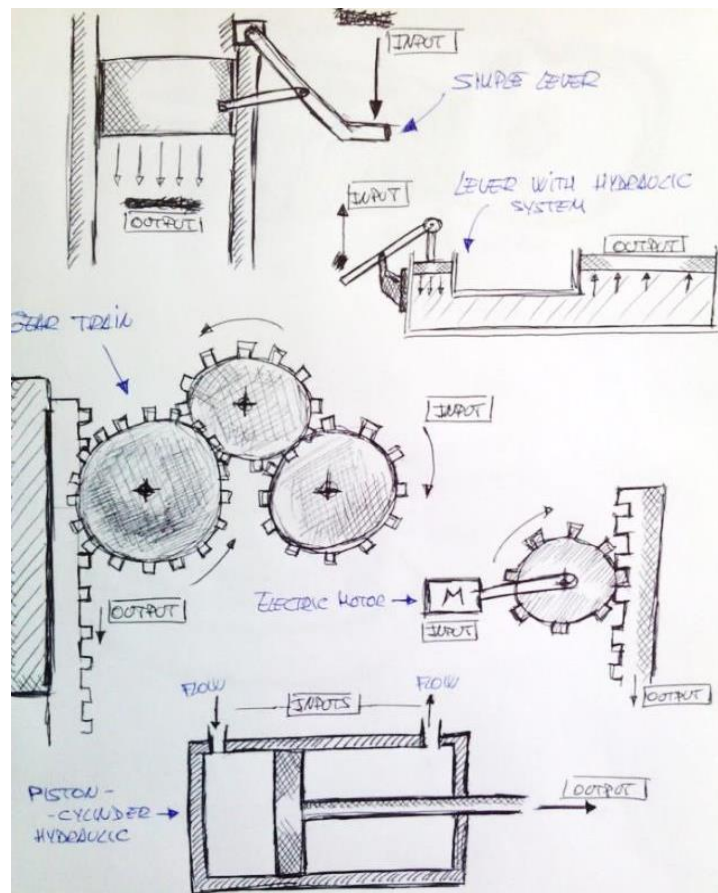 INPUT
SIMPLE LEVER
OUTPUT
INPUT
LEVER WITH HYDRAULIC
SYSTEM
OUTPUT
GEAR TRAIN
INPUT
OUTPUT
ELECTRIC MOTOR
M
INPUT
OUTPUT
FLOW
INPUTS
FLOW
PISTON-
-CYLINDER
HYDRAULIC
OUTPUT